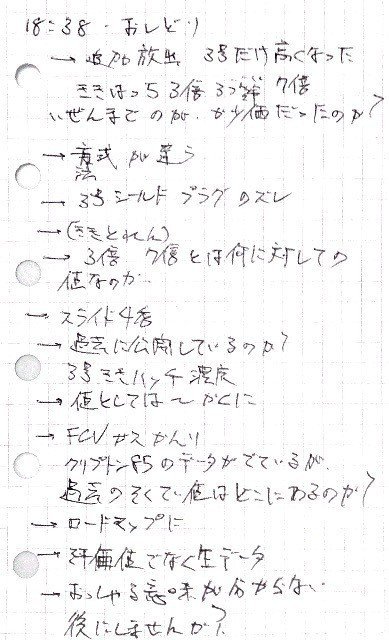 18:38. おしどり
→ 追加放出 3号だけ高くなった
ききはっち 3倍 7倍
いぜんまでのが、か少評価だったのか?
→ 方式が違う
法
→ 3号シールドプラグのズレ
→ (ききとれん)
→ 3倍 7倍とは何に対しての
値なのか
→ スライド4番
→ 過去に公開しているのか?
3号ききハッチ濃度
→ 値としては〜かくに
→ FCVガスかんり
クリプトン85のデータがでているが、
過去のそくてい値はどこにあるのか?
→ ロードマップに
→ 評価値でなく生データ
→ おっしゃる意味が分からない
後にしませんか?